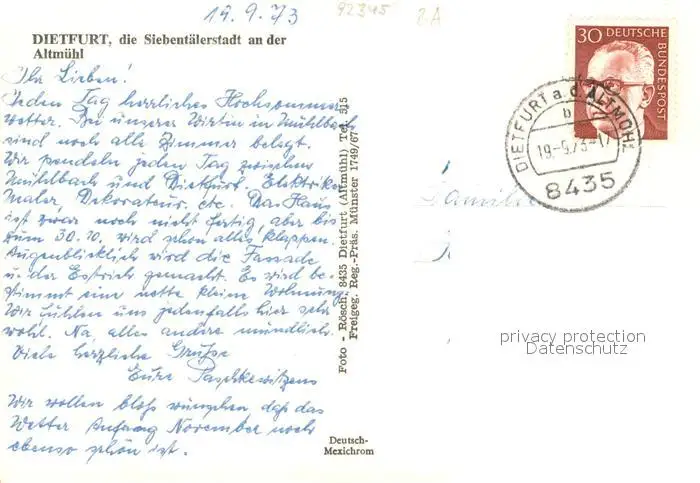 19.9.73
92345
2A
DIETFURT, die Siebentälerstadt an der
Altmühl
Ihr Lieben!
Jeden Tag herrliches Hochsommer
wetter. Bei unserer Wirtin in Mühlbach
sind noch alle Zimmer belegt.
Wir pendeln jeden Tag zwischen
Mühlbach und Dietfurt. Elektriker
Maler, Dekorateur, etc. Das Haus
ist zwar noch nicht fertig, aber bis
zum 30.10. wird schon alles klappen.
Augenblicklich wird die Fassade
u. der Estrich gemacht. Es wird be-
stimmt eine nette kleine Wohnung.
Wir fühlen uns jedenfalls hier sehr
wohl. Na, alles andere mündlich.
Viele herzliche Grüße
Eure Paschkewitzens
Wir wollen bloß wünschen, daß das
Wetter Anfang November noch
ebenso schön ist.
Foto - Rösch, 8435 Dietfurt (Altmühl) Tel. 515
Freigeg. Reg.-Präs. Münster 1749/67
Deutsch-
Mexichrom
30 DEUTSCHE
BUNDESPOST
DIETFURT a.d. ALTMÜHL
b
19.-9.73-17
8435
Familie
privacy protection
Datenschutz